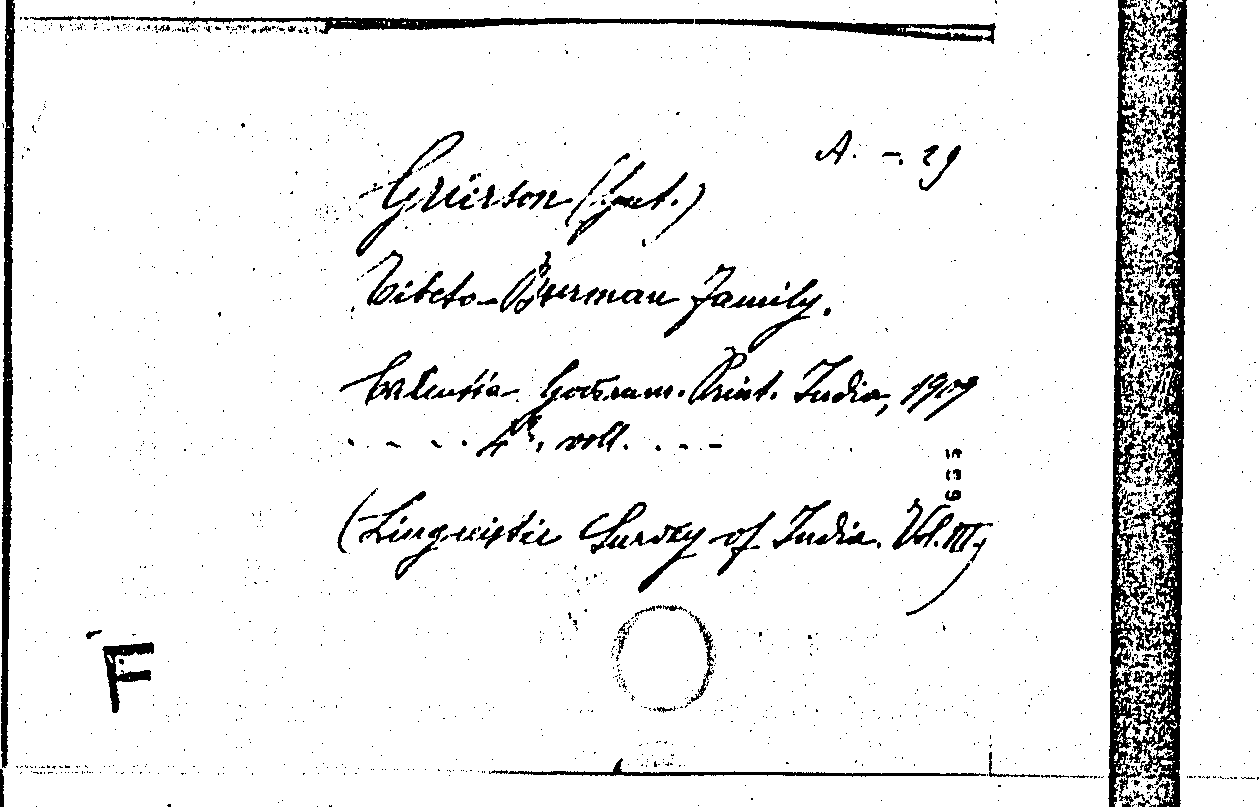 A. -. 29
Grierson
Tibeto-Burman Family.
Calcutta Print. India, 1909
4°, voll.
(Linguistic Survey of India. Vol. III)
F